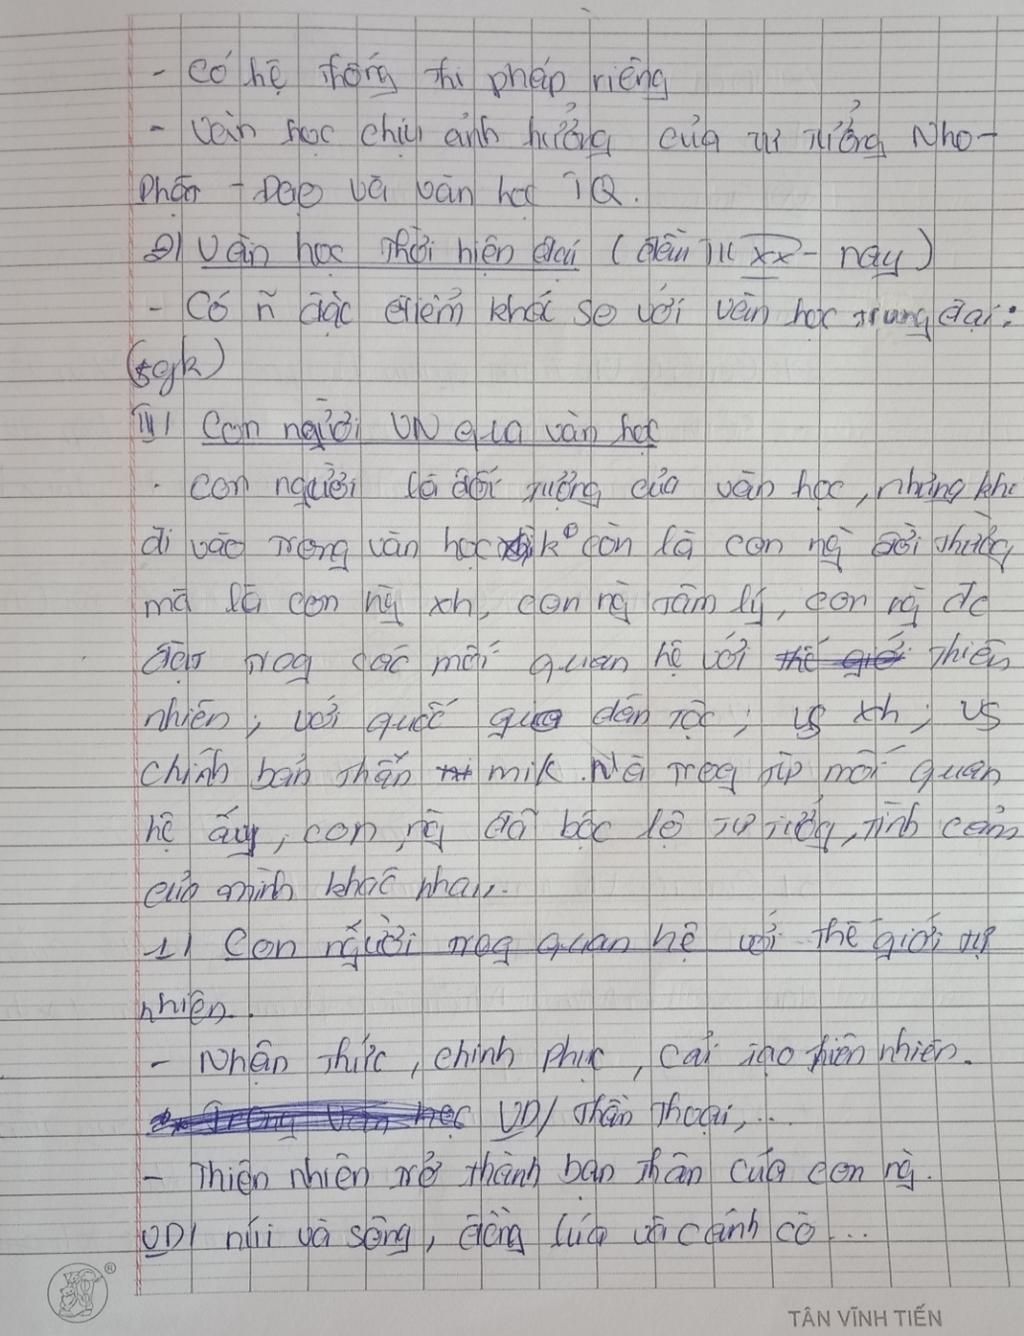 - Có hệ thống thi pháp riêng
- Văn học chịu ảnh hưởng của tư tưởng Nho -
Phật - Đạo và văn học TQ.
2) Văn học thời hiện đại (đầu TK XX - nay)
- Có ~n đặc điểm khác so với văn học trung đại:
(sgk)
III) Con người VN qua văn học
. Con người là đối tượng của văn học, nhưng khi
đi vào trong văn học k° còn là con ng` đời thường
mà là con ng` xh, con ng` tâm lý, con ng` đc
đặt trog các mối quan hệ với thiên
nhiên; với quốc gia dân tộc; vs xh; vs
chính bản thân mik. Và trog từ mối quan
hệ ấy, con ng` đã bộc lộ tư tưởng, tình cảm
của mình khác nhau.
1) Con người trog quan hệ với thế giới tự
nhiên.
- Nhận thức, chinh phục, cải tạo thiên nhiên.
VD/ thần thoại,...
- Thiên nhiên trở thành bạn thân của con ng`.
VD/ núi và sông, đồng lúa và cánh cò...
®
TÂN VĨNH TIẾN